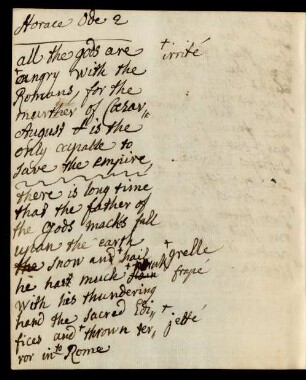 Horace Ode 2
all the gods are + irrité
+angry with the
Romans, for the
murther of Cæsar„
August + is the
only capable to
save the empire,
there is long time
that the father of
the Gods macks fall
upan the earth
the snow and + hail + grelle
he hast much struk + frapé
with hes thundering
hand the sacred Edi„
fices and + thrown ter„ + jetté
ror inte Rome